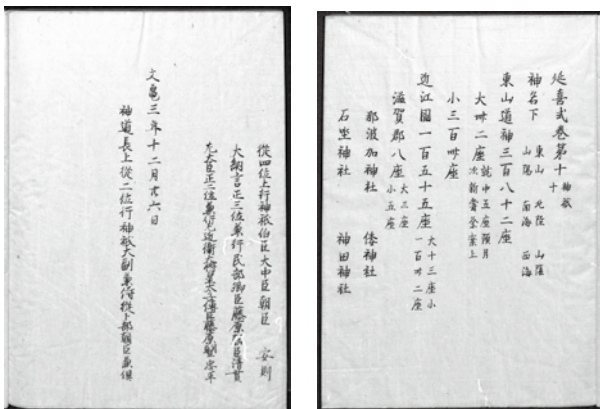 延喜式卷第十 神祇十
神名下 東山 北陸 山陰 山陽 南海 西海
東山道神三百八十二座
大卌二座 就中五座預月次新嘗祭案上
小三百卌座
近江國一百五十五座 大十三座小一百卌二座
滋賀郡八座 大三座小五座
那波加神社 倭神社
石坐神社 神田神社
從四位上行神祇伯臣大中臣朝臣 安則
大納言正三位兼行民部卿臣藤原朝臣清貫
左大臣正二位兼行左近衛大将皇太子傅臣藤原朝臣忠平
文亀三年十二月廿六日
神道長上從二位行神祇大副兼侍從卜部朝臣兼俱